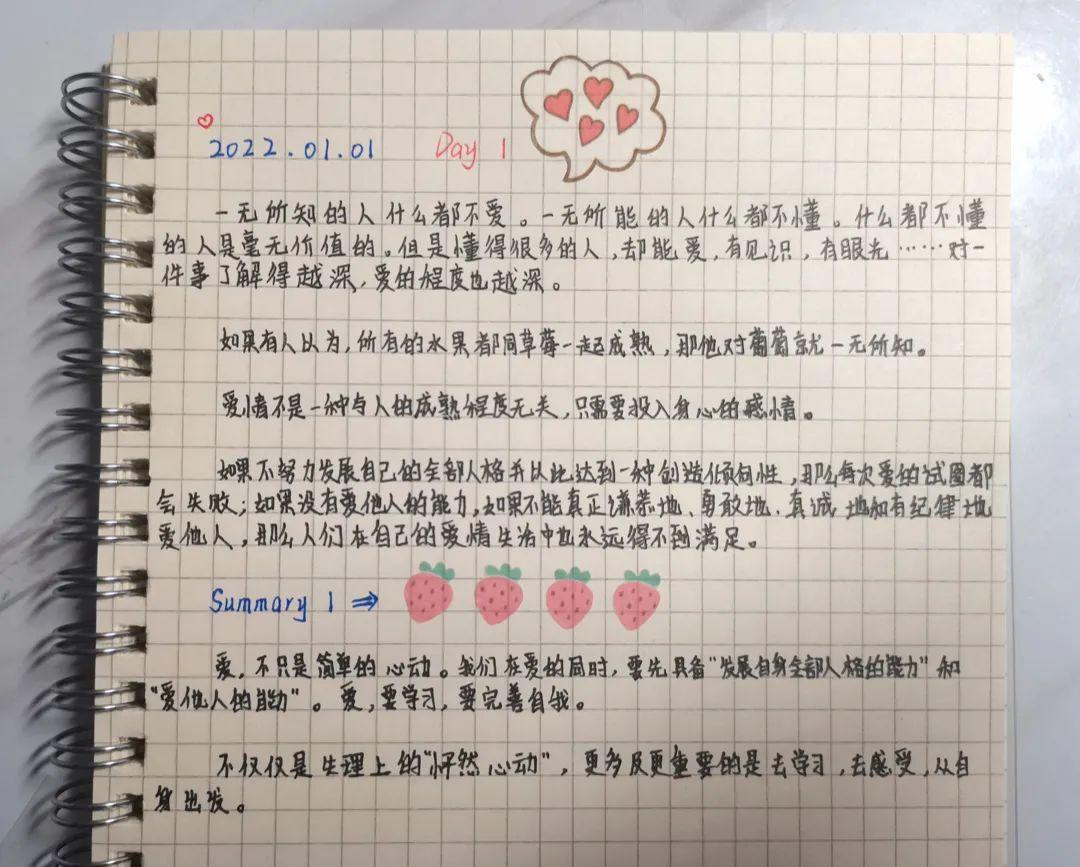 2022.01.01 Day 1
一无所知的人什么都不爱。一无所能的人什么都不懂。什么都不懂
的人是毫无价值的。但是懂得很多的人,却能爱,有见识,有眼光……对一
件事了解得越深,爱的程度也越深。
如果有人以为,所有的水果都同草莓一起成熟,那他对葡萄就一无所知。
爱情不是一种与人的成熟程度无关,只需要投入身心的感情。
如果不努力发展自己的全部人格并以此达到一种创造倾向性,那么每次爱的试图都
会失败;如果没有爱他人的能力,如果不能真正谦恭地、勇敢地、真诚地和有纪律地
爱他人,那么人们在自己的爱情生活中也永远得不到满足。
Summary 1 ⇒
爱,不只是简单的心动。我们在爱的同时,要先具备“发展自身全部人格的能力”和
“爱他人的能力”。爱,要学习,要完善自我。
不仅仅是生理上的“怦然心动”,更多及更重要的是去学习,去感受,从自
身出发。